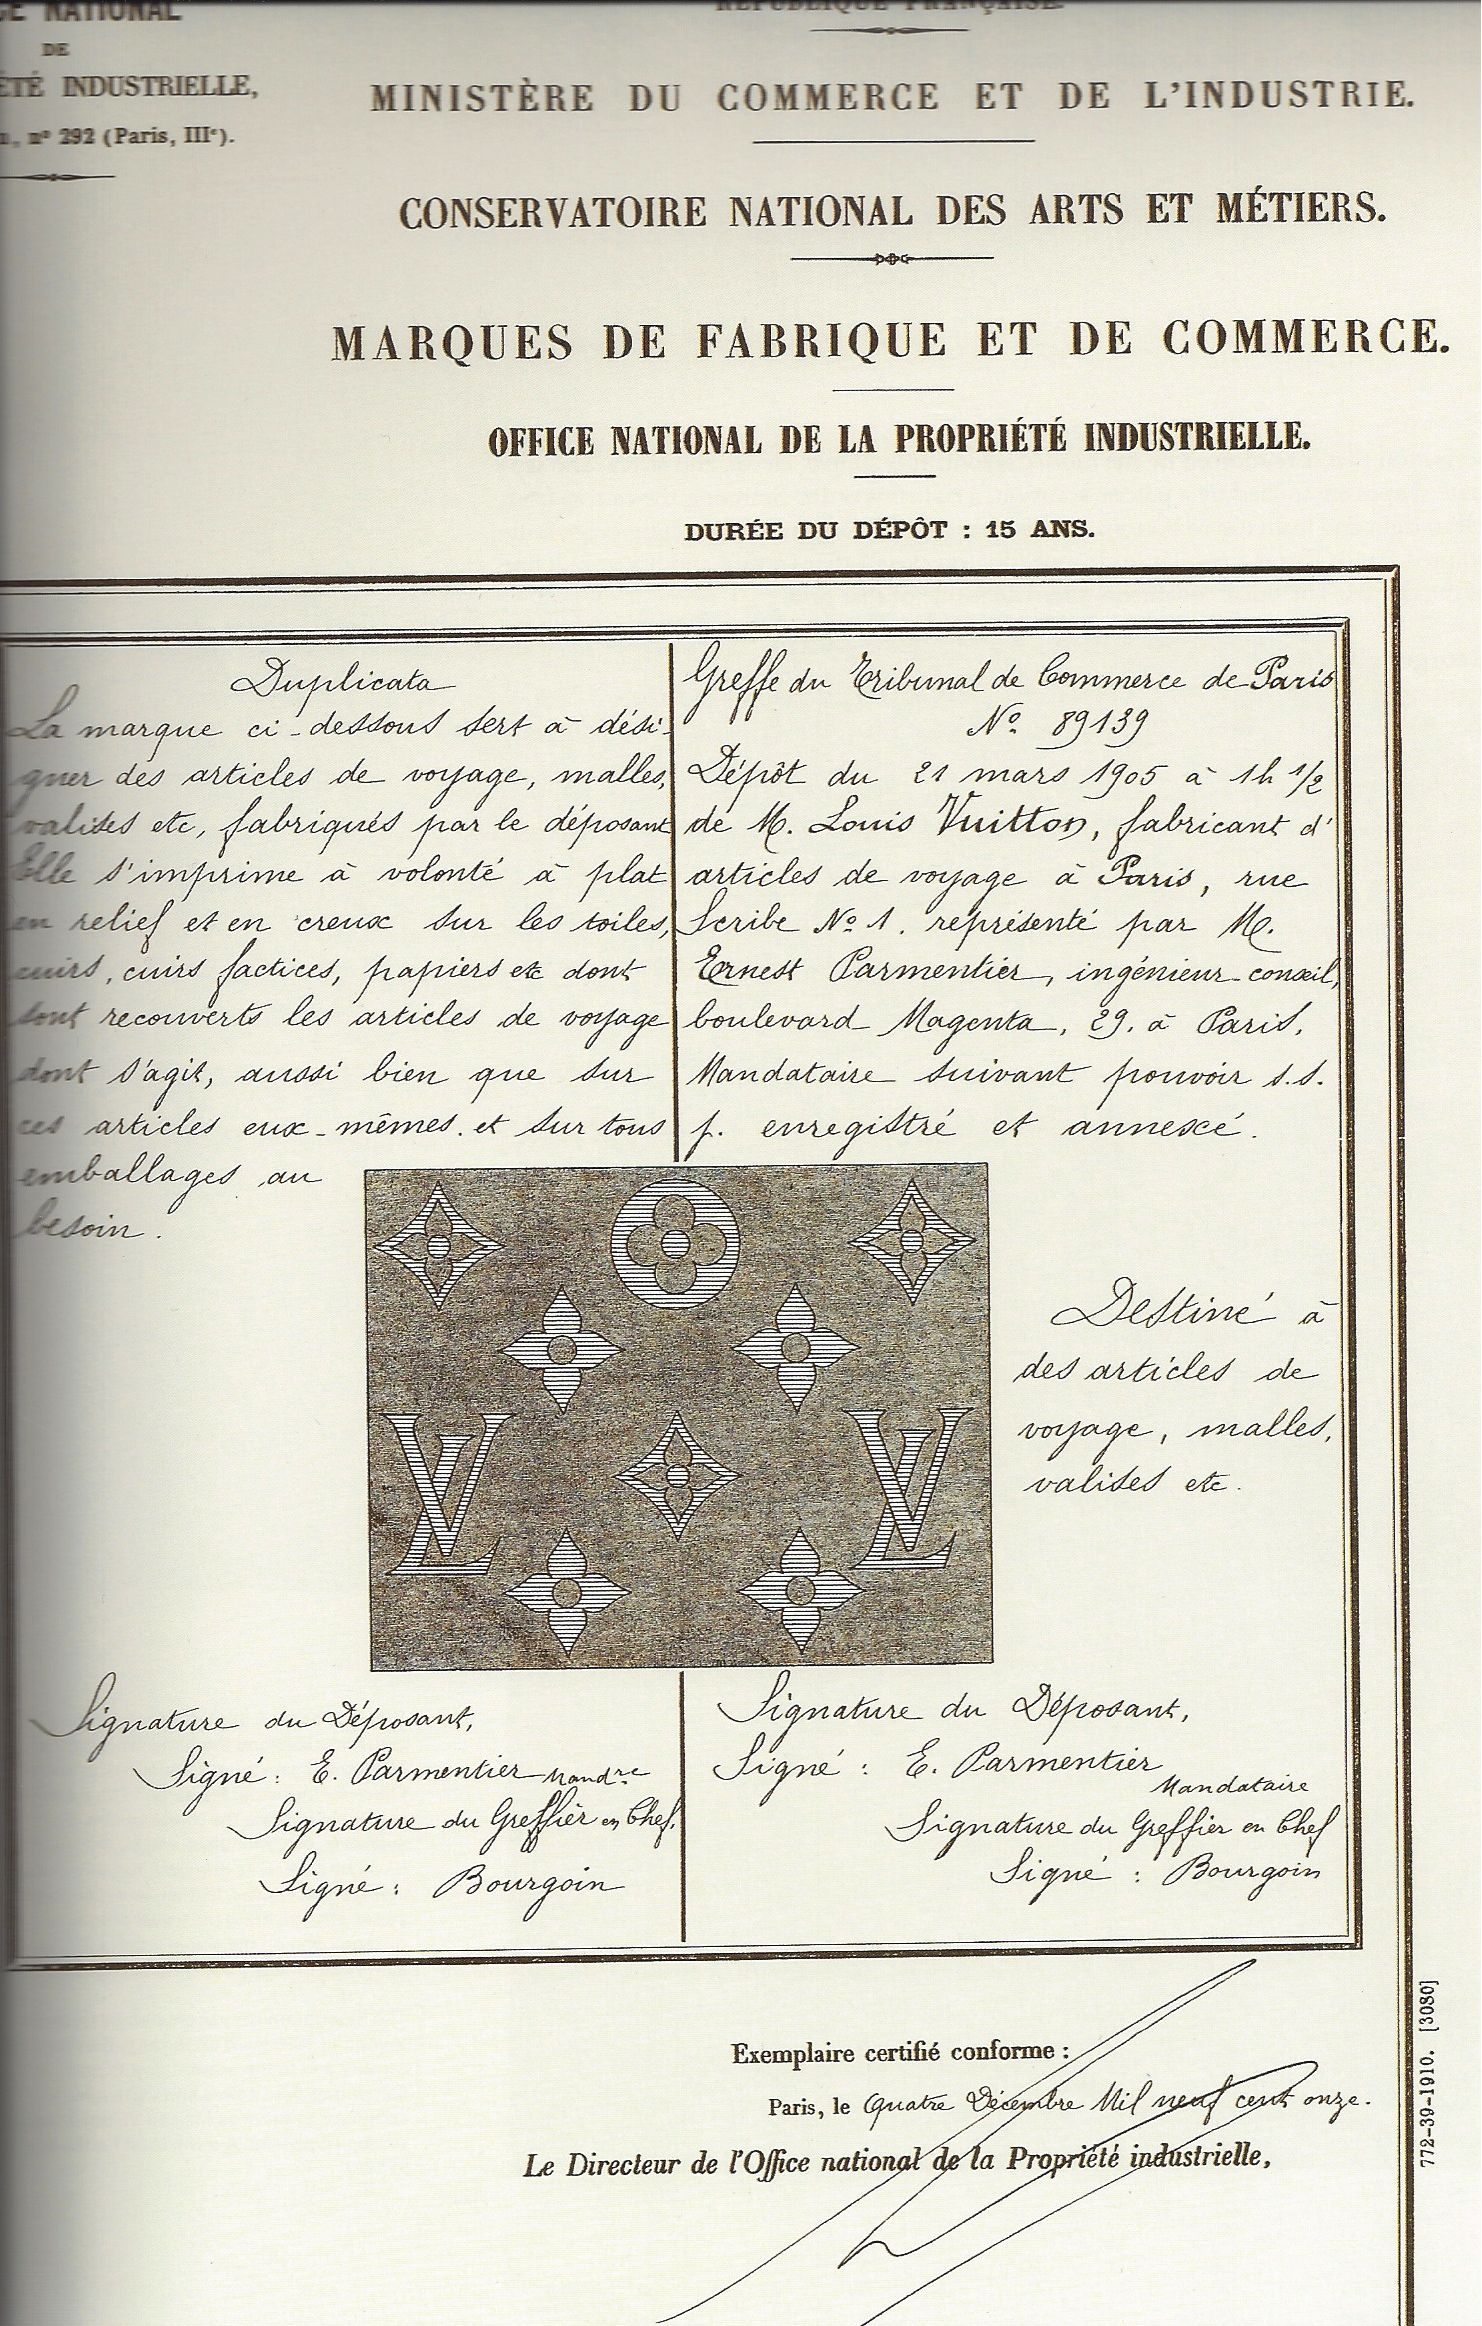 NATIONAL
DE
INDUSTRIELLE,
nº 292 (Paris, IIIe).
RÉPUBLIQUE FRANÇAISE.
MINISTÈRE DU COMMERCE ET DE L'INDUSTRIE.
CONSERVATOIRE NATIONAL DES ARTS ET MÉTIERS.
MARQUES DE FABRIQUE ET DE COMMERCE.
OFFICE NATIONAL DE LA PROPRIÉTÉ INDUSTRIELLE.
DURÉE DU DÉPÔT : 15 ANS.
Duplicata
La marque ci-dessous sert à dési-
gner des articles de voyage, malles,
valises etc, fabriqués par le déposant
Elle s'imprime à volonté à plat
en relief et en creux sur les toiles,
cuirs, cuirs factices, papiers etc dont
sont recouverts les articles de voyage
dont s'agit, aussi bien que sur
ces articles eux-mêmes. et sur tous
emballages au
besoin.
Greffe du Tribunal de Commerce de Paris
Nº 89139
Dépôt du 21 mars 1905 à 1h 1/2
de M. Louis Vuitton, fabricant d'
articles de voyage à Paris, rue
Scribe Nº 1. représenté par M.
Ernest Parmentier, ingénieur-conseil,
boulevard Magenta, 29. à Paris,
Mandataire suivant pouvoir s.s.
p. enregistré et annexé.
LV LV
Destiné à
des articles de
voyage, malles,
valises etc.
Signature du Déposant,
Signé : E. Parmentier Mandre
Signature du Greffier en Chef,
Signé : Bourgoin
Signature du Déposant,
Signé : E. Parmentier
Mandataire
Signature du Greffier en Chef
Signé : Bourgoin
Exemplaire certifié conforme :
Paris, le Quatre Décembre Mil neuf cent onze.
Le Directeur de l'Office national de la Propriété industrielle,
772-39-1910. [3080]